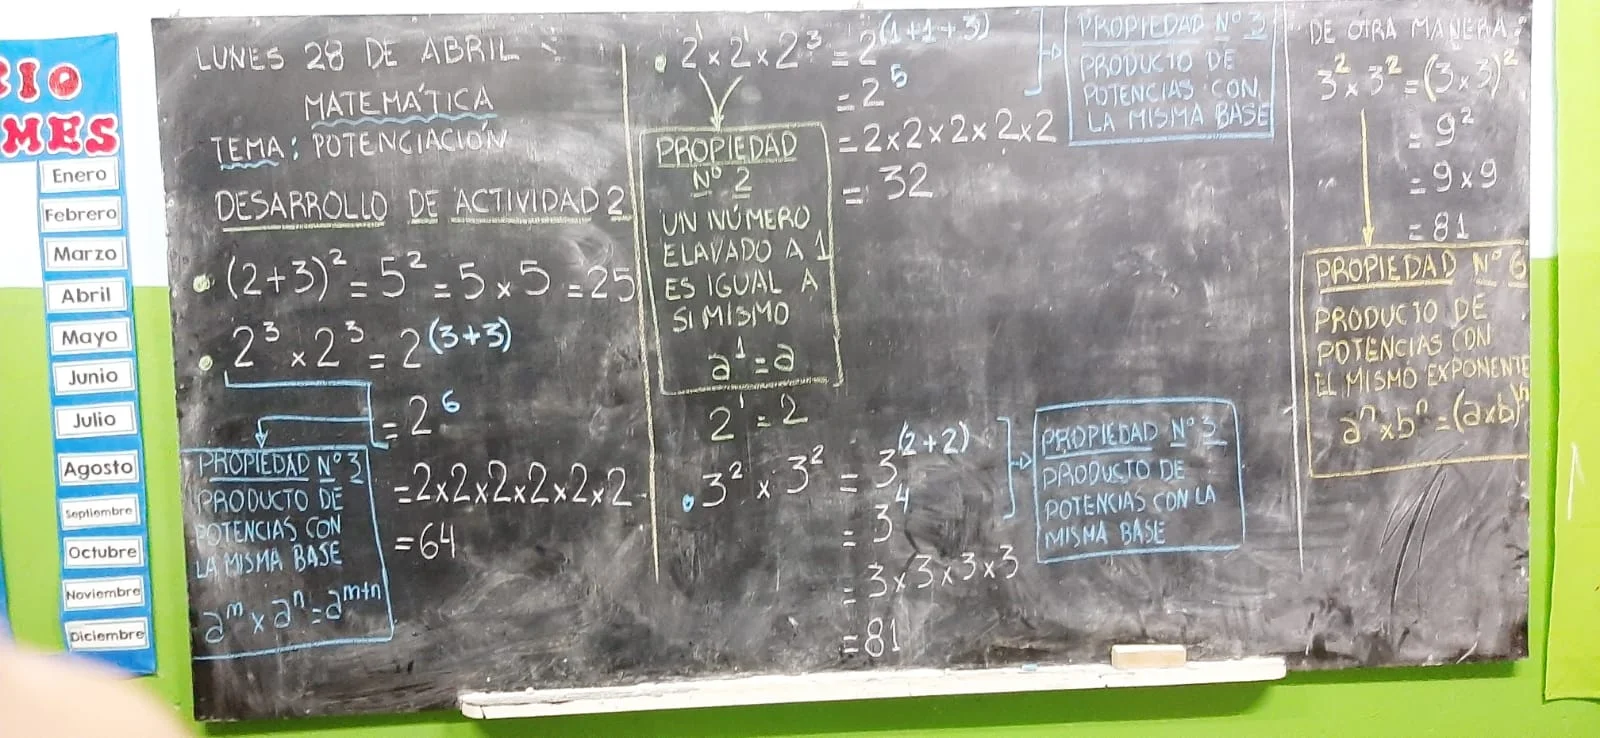 MES
Enero
Febrero
Marzo
Abril
Mayo
Junio
Julio
Agosto
Septiembre
Octubre
Noviembre
Diciembre
LUNES 28 DE ABRIL
MATEMÁTICA
TEMA: POTENCIACIÓN
DESARROLLO DE ACTIVIDAD 2
(2+3)² = 5² = 5 × 5 = 25
2³ × 2³ = 2⁽³⁺³⁾
= 2⁶
= 2×2×2×2×2×2
= 64
PROPIEDAD N° 3
PRODUCTO DE
POTENCIAS CON
LA MISMA BASE
aᵐ × aⁿ = aᵐ⁺ⁿ
2¹ × 2¹ × 2³ = 2⁽¹⁺¹⁺³⁾
= 2⁵
= 2×2×2×2×2
= 32
PROPIEDAD N° 3
PRODUCTO DE
POTENCIAS CON
LA MISMA BASE
PROPIEDAD
N° 2
UN NÚMERO
ELAVADO A 1
ES IGUAL A
SI MISMO
a¹ = a
2¹ = 2
3² × 3² = 3⁽²⁺²⁾
= 3⁴
= 3×3×3×3
= 81
PROPIEDAD N° 3
PRODUCTO DE
POTENCIAS CON LA
MISMA BASE
DE OTRA MANERA:
3² × 3² = (3×3)²
= 9²
= 9 × 9
= 81
PROPIEDAD N° 6
PRODUCTO DE
POTENCIAS CON
EL MISMO EXPONENTE
aⁿ × bⁿ = (a×b)ⁿ